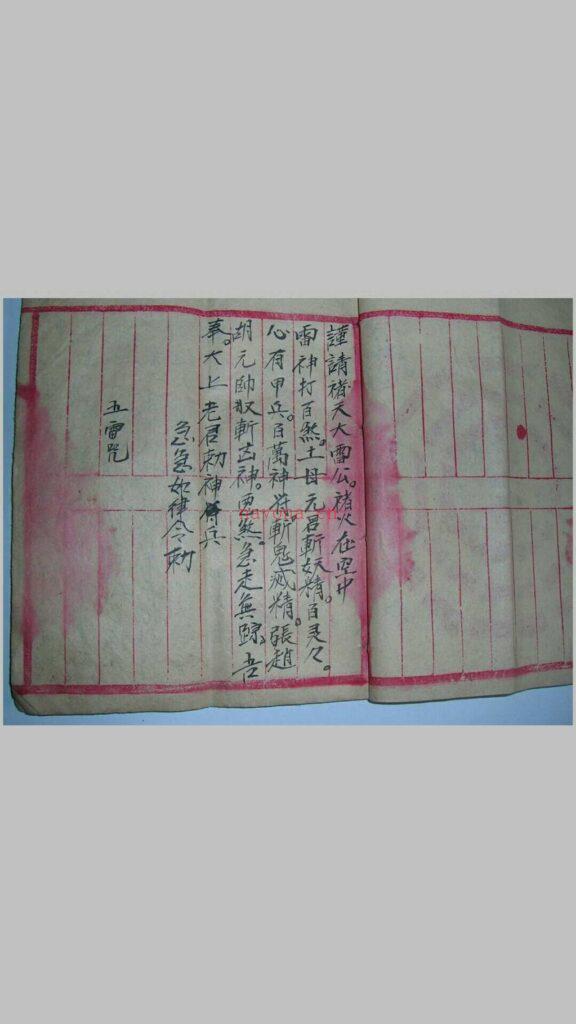 謹請褚天大雷公。褚火在空中
雷神打百煞。土母元君斬妖精。百灵々。
心有甲兵。百萬神将斬鬼滅精。張趙
胡元帥収斬凶神。惡煞。急走無踪。吾
奉。太上老君勅神兵
急急如律令勅
五雷咒